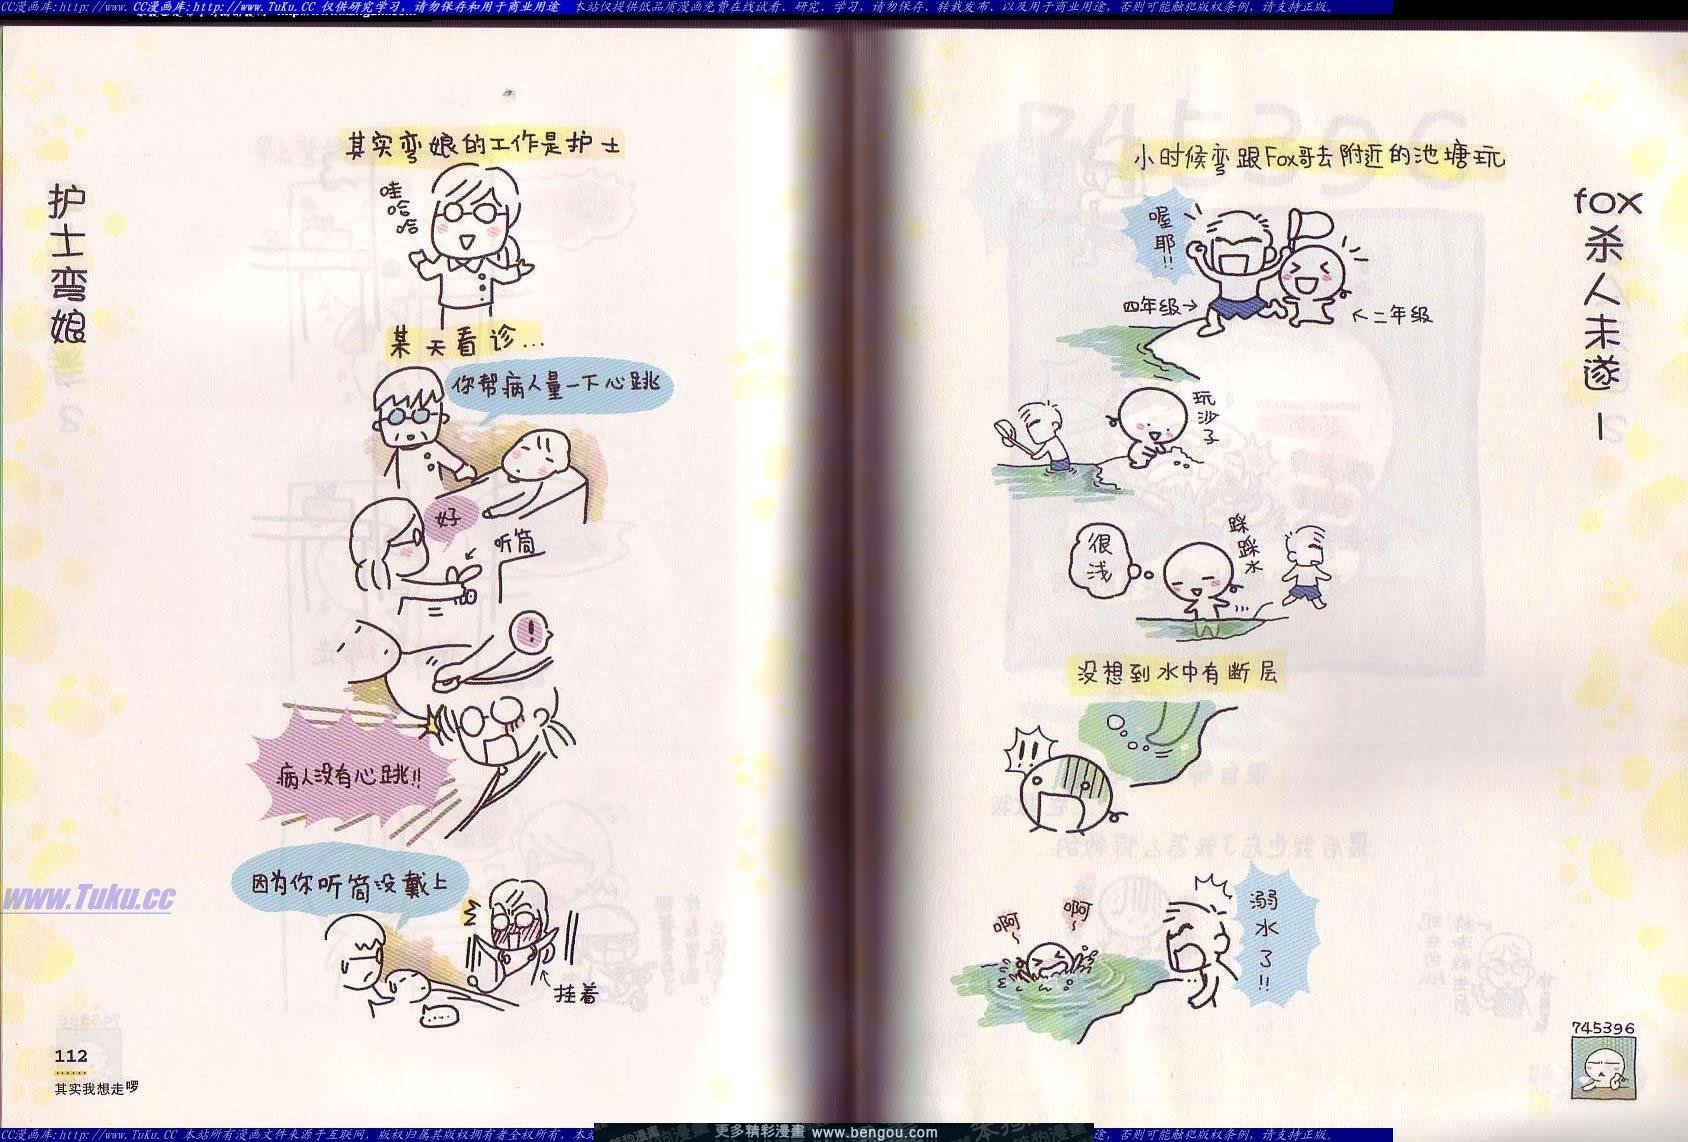 CC漫画库:http://www.CC漫画库:http://www.TuKu.CC 仅供研究学习，请勿保存和用于商业用途 本站仅提供低品质漫画免费在线试看、研究，学习，请勿保存、转载发布、以及用于商业用途，否则可能触犯版权条例，请支持正版。
护士弯娘
其实弯娘的工作是护士
哇哈哈
某天看诊…
你帮病人量一下心跳
好
听筒
!
病人没有心跳!!
因为你听筒没戴上
挂着
....
www.Tuku.cc
112
其实我想走啰
fox杀人未遂1
小时候弯跟Fox哥去附近的池塘玩
喔耶!!
四年级→
←二年级
玩沙子
很浅
踩踩水
没想到水中有断层
!!
啊~
啊~
溺水了!!
745396
CC漫画库:http://www.TuKu.CC 本站所有漫画文件来源于互联网，版权归属其版权拥有者全权所有，本
更多精彩漫画 www.bengou.com
途，否则可能触犯版权条例，请支持正版。